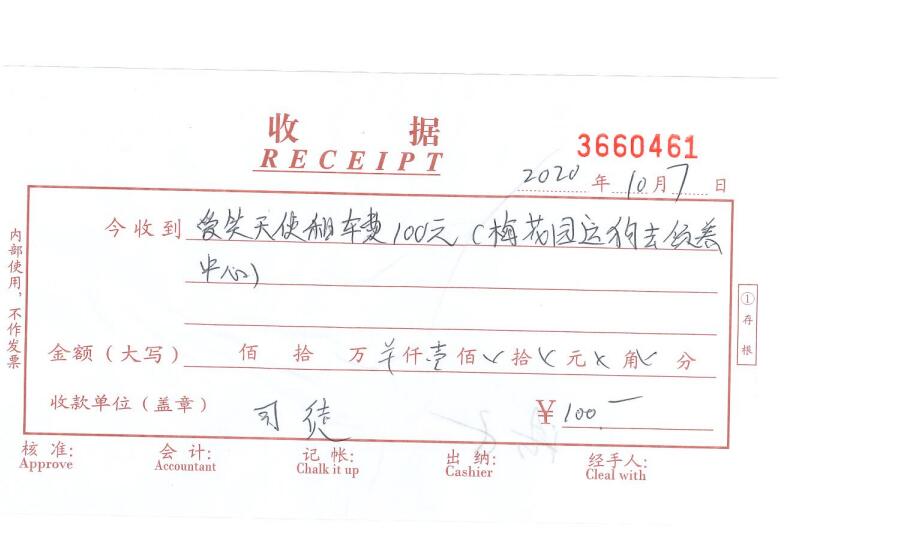 收 据
RECEIPT
3660461
2020 年 10 月 7 日
今收到 爱笑天使租车费100元(梅花园运狗去领养
中心)
金额(大写) 佰 拾 万 羊 仟 壹 佰 拾 元 角 分
收款单位(盖章) 司徒 ¥ 100.一
核 准: 会 计: 记 帐: 出 纳: 经手人:
Approve Accountant Chalk it up Cashier Cleal with
内部使用,不作发票
①存根